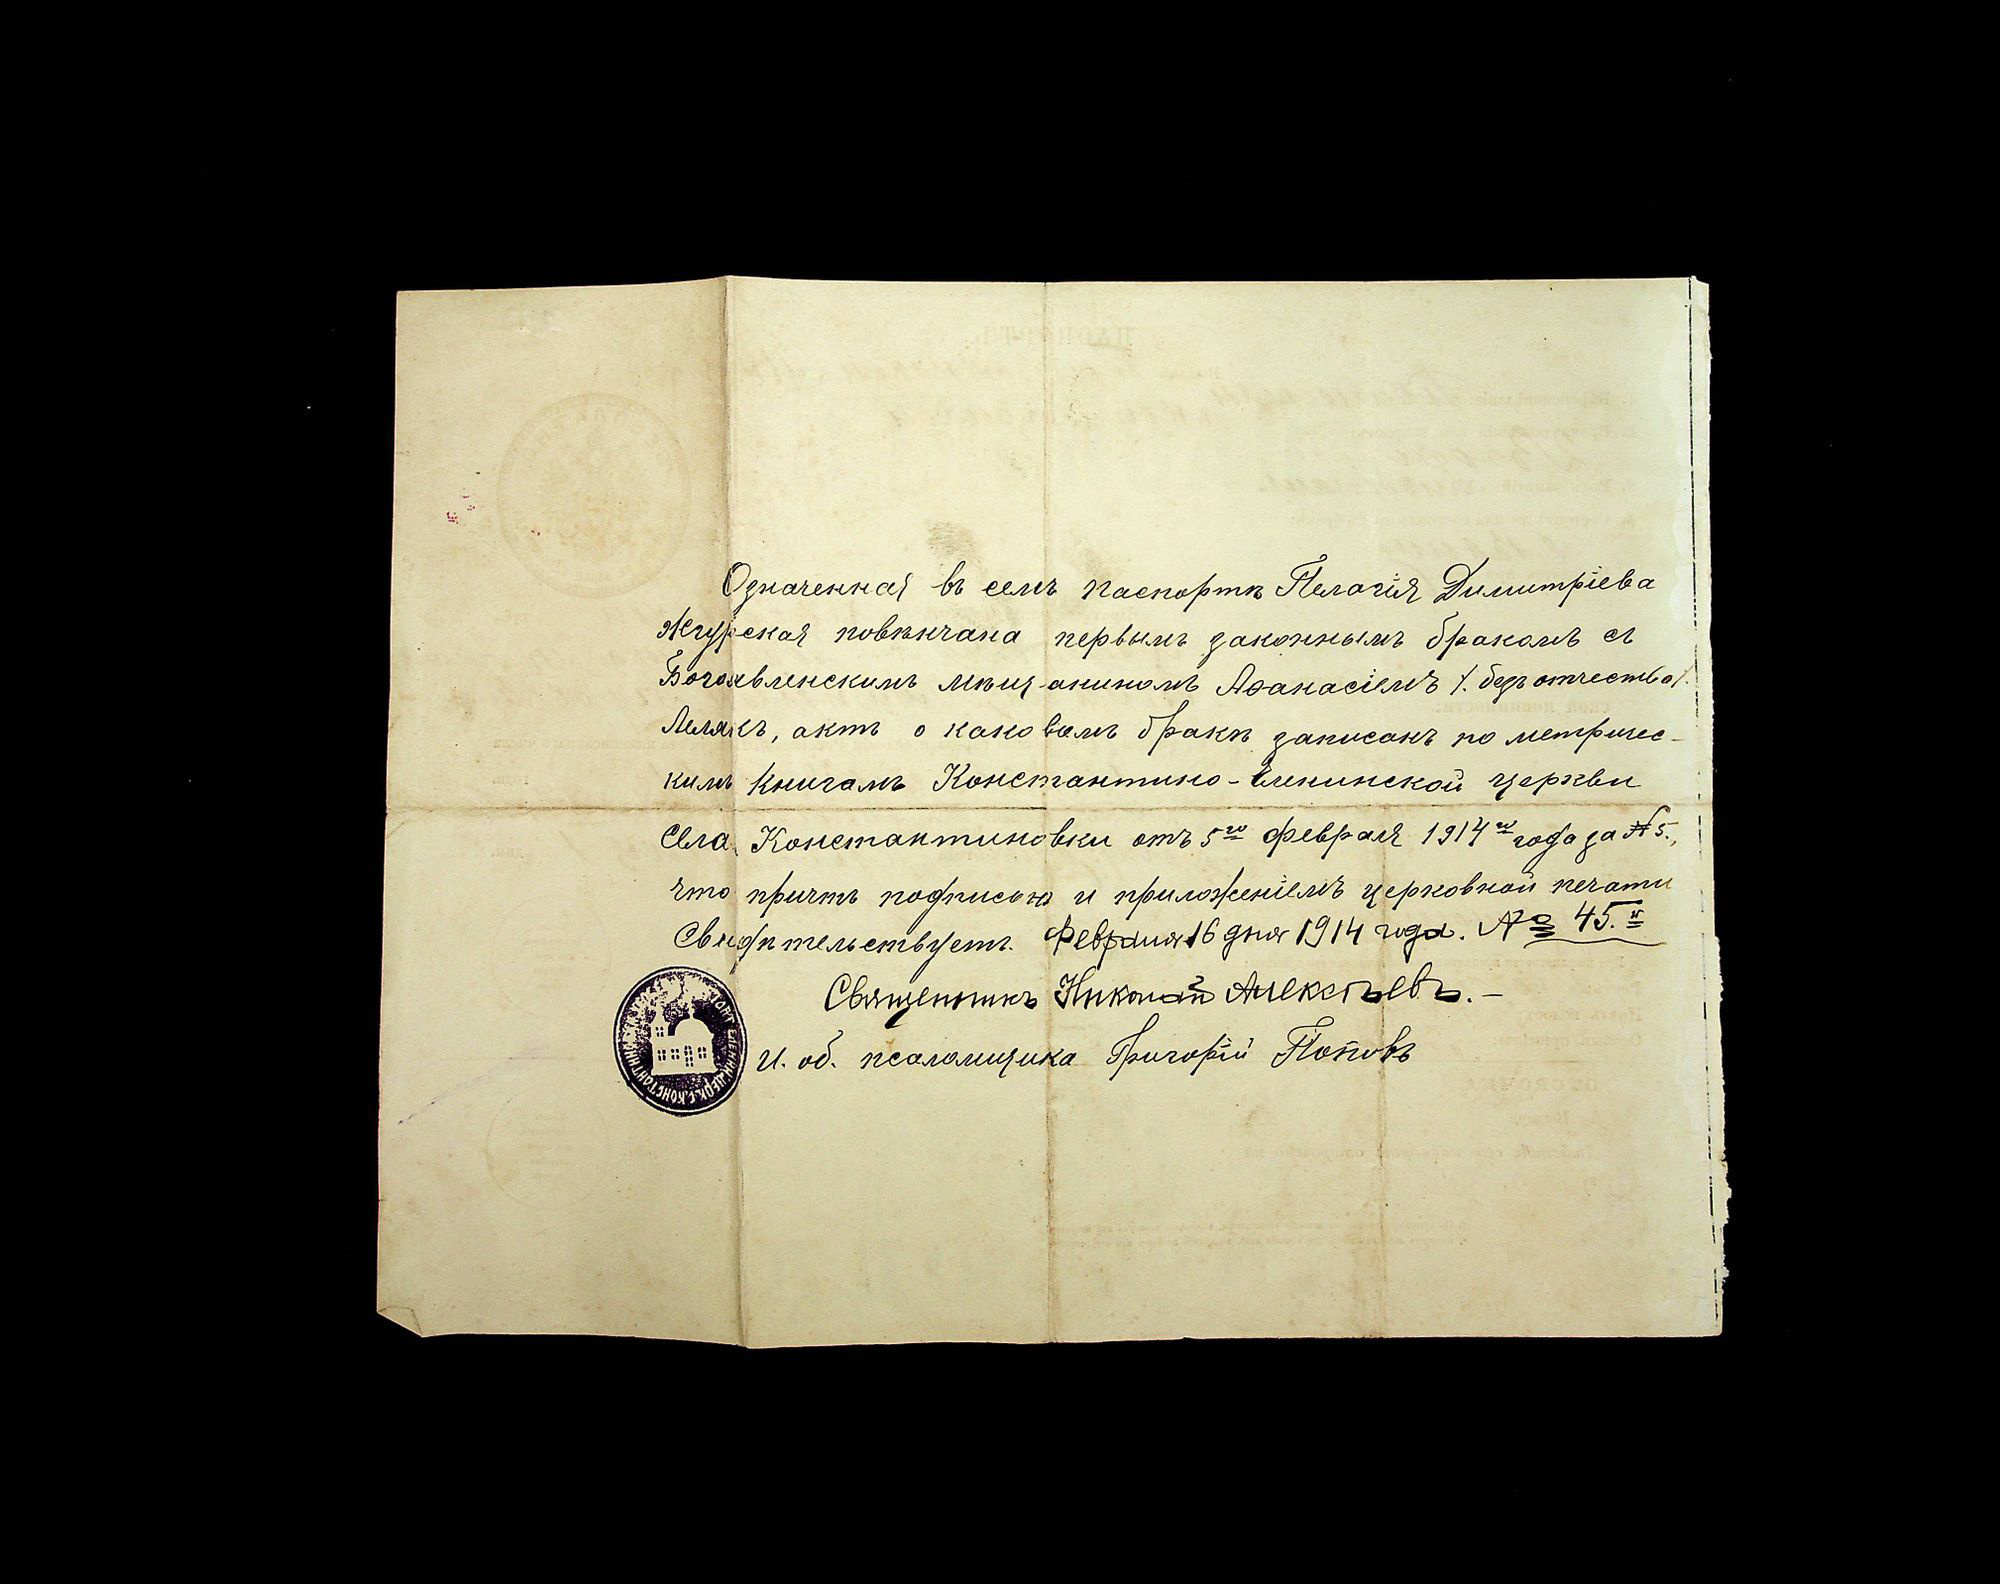 Означенная въ семъ паспортѣ Пелагія Димитріева
Жгурская повѣнчана первымъ законнымъ бракомъ съ
Богоявленскимъ мѣщаниномъ Аѳанасіемъ /. безъ отчества /.
Леляхъ, актъ о каковомъ бракѣ записанъ по метричес-
кимъ книгамъ Константино-Еленинской церкви
села Константиновки отъ 5го Февраля 1914го года за № 5,
что причтъ подписью и приложеніемъ церковной печати
свидѣтельствуетъ. Февраля 16 дня 1914 года. № 45.й
Священникъ Николай Алексѣевъ. –
И. об. псаломщика Григорій Поповъ